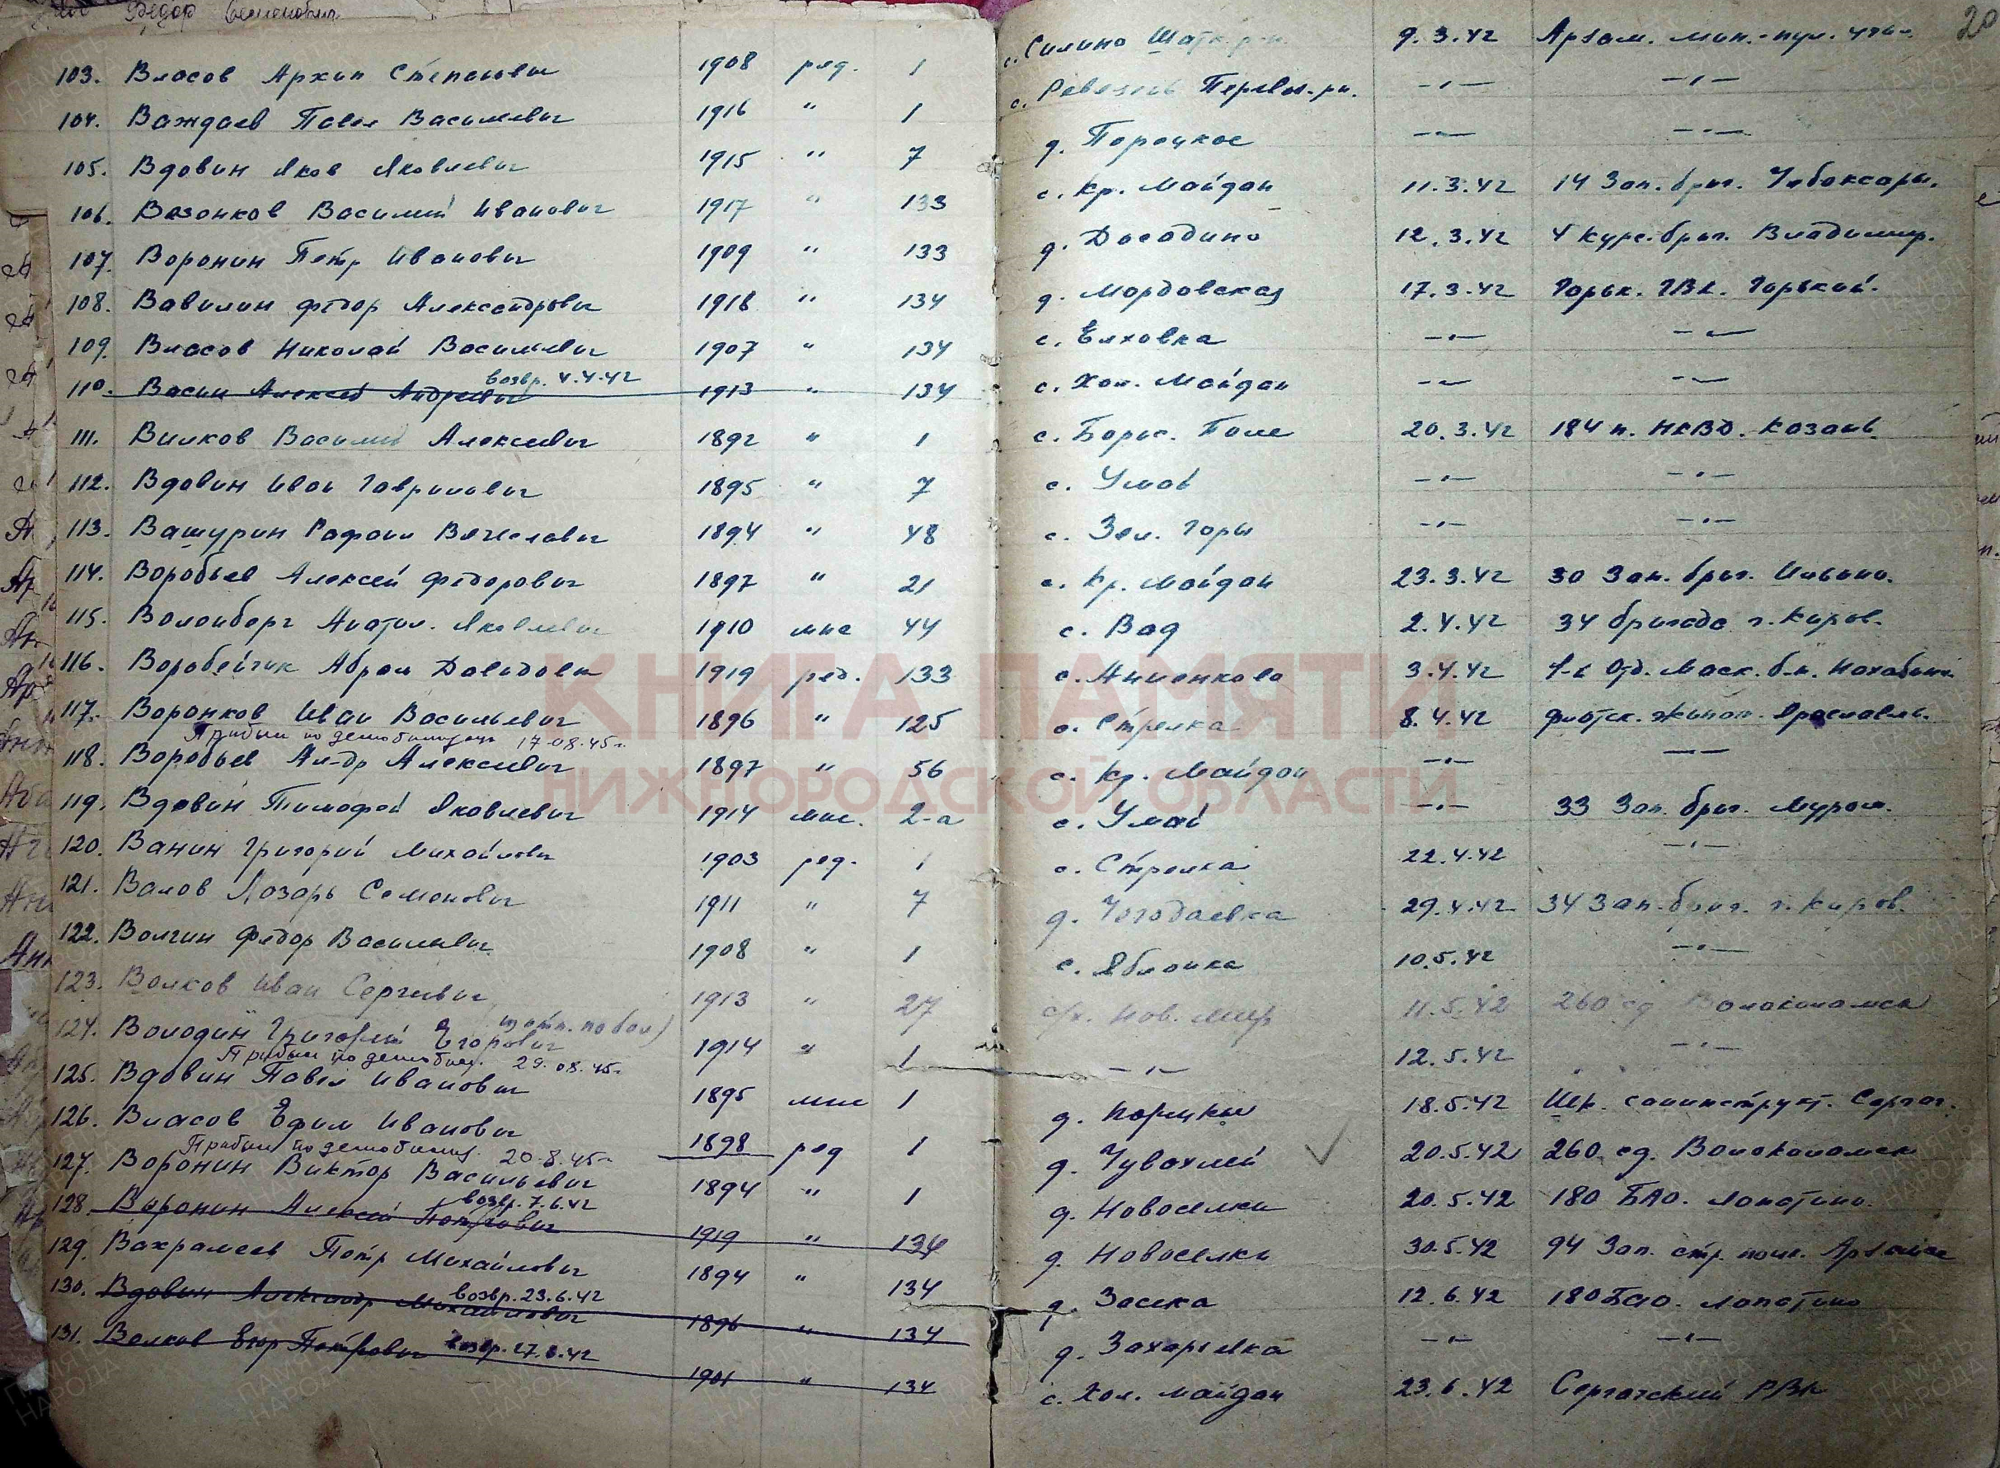 Федор Семенович
20
103. Власов Архип Степанович 1908 ряд. 1 с. Силино Шатк. р-н. 9.3.42 Арзам. мин.-пул. учил.
104. Важдаев Павел Васильевич 1916 " 1 с. Ревезень Перевоз. р-н. —"— —"—
105. Вдовин Яков Яковлевич 1915 " 7 д. Порецкое —"— —"—
106. Вазонков Василий Иванович 1917 " 133 с. Кр. Майдан 11.3.42 14 Зап. бриг. Чебоксары.
107. Воронин Петр Иванович 1909 " 133 д. Досадино 12.3.42 4 курс. бриг. Владимир.
108. Вавилин Федор Александрович 1918 " 134 д. Мордовская 17.3.42 Горьк. ГВК. Горький.
109. Власов Николай Васильевич 1907 " 134 с. Елховка —"— —"—
возвр. 4.4.42
110. Васин Алексей Андреевич 1913 " 134 с. Хол. Майдан —"— —"—
111. Вилков Василий Алексеевич 1892 " 1 с. Борис. Поле 20.3.42 184 п. НКВД. Казань
112. Вдовин Иван Гаврилович 1895 " 7 с. Умай —"— —"—
113. Вашурин Рафаил Вячеславич 1894 " 48 с. Зел. Горы —"— —"—
114. Воробьев Алексей Федорович 1897 " 21 с. Кр. Майдан 23.3.42 30 Зап. бриг. Ильино.
115. Воленберг Анатол. Яковлевич 1910 мнс 44 с. Вад 2.4.42 34 бригада г. Киров.
116. Воробейчик Абрам Давидович 1919 ряд. 133 с. Анненково 3.4.42 1-й Отд. Моск. б-н. Нахабино
117. Воронков Иван Васильевич 1896 " 125 с. Стрелка 8.4.42 Флотск. экипаж. Ярославль.
Прибыл по демобилизации 17.08.45г.
118. Воробьев Ал-др Алексеевич 1897 " 56 с. Кр. Майдан —"— —"—
119. Вдовин Тимофей Яковлевич 1914 мнс. 2-а с. Умай —"— 33 Зап. бриг. Муром.
120. Ванин Григорий Михайлович 1903 ряд. 1 с. Стрелка 22.4.42 —"—
121. Валов Лазарь Семенович 1911 " 7 д. Чегодаевка 29.4.42 34 Зап. бриг. г. Киров.
122. Волгин Федор Васильевич 1908 " 1 с. Яблонка 10.5.42 —"—
123. Волков Иван Сергеевич 1913 " 27 с/х. Нов. Мир 11.5.42 260 сд Волоколамск
124. Володин Григорий Егорович 1914 " 1 —"— 12.5.42 —"—
Прибыл по демобил. 29.08.45г.
125. Вдовин Павел Иванович 1895 мнс 1 д. Корицкы 18.5.42 Шк. санинструкт. Сергач.
126. Власов Ефим Иванович 1898 ряд 1 д. Чувахлей 20.5.42 260 сд. Волоколамск
Прибыл по демобилиз. 20.8.45г
127. Воронин Виктор Васильевич 1894 " 1 д. Новоселки 20.5.42 180 БАО. Лопатино.
возвр. 7.6.42
128. Воронин Алексей Петрович 1919 " 134 д. Новоселки 30.5.42 94 Зап. стр. полк. Арзамас
129. Вахрамеев Петр Михайлович 1894 " 134 д. Засека 12.6.42 180 БАО. Лопатино
возвр. 23.6.42
130. Вдовин Александр Михайлович 1896 " 134 д. Захарьевка —"— —"—
131. Волков Егор Петрович возвр. 27.6.42 1901 " 134 с. Хол. Майдан 23.6.42 Сергачский РВК
КНИГА ПАМЯТИ
НИЖГОРОДСКОЙ ОБЛАСТИ